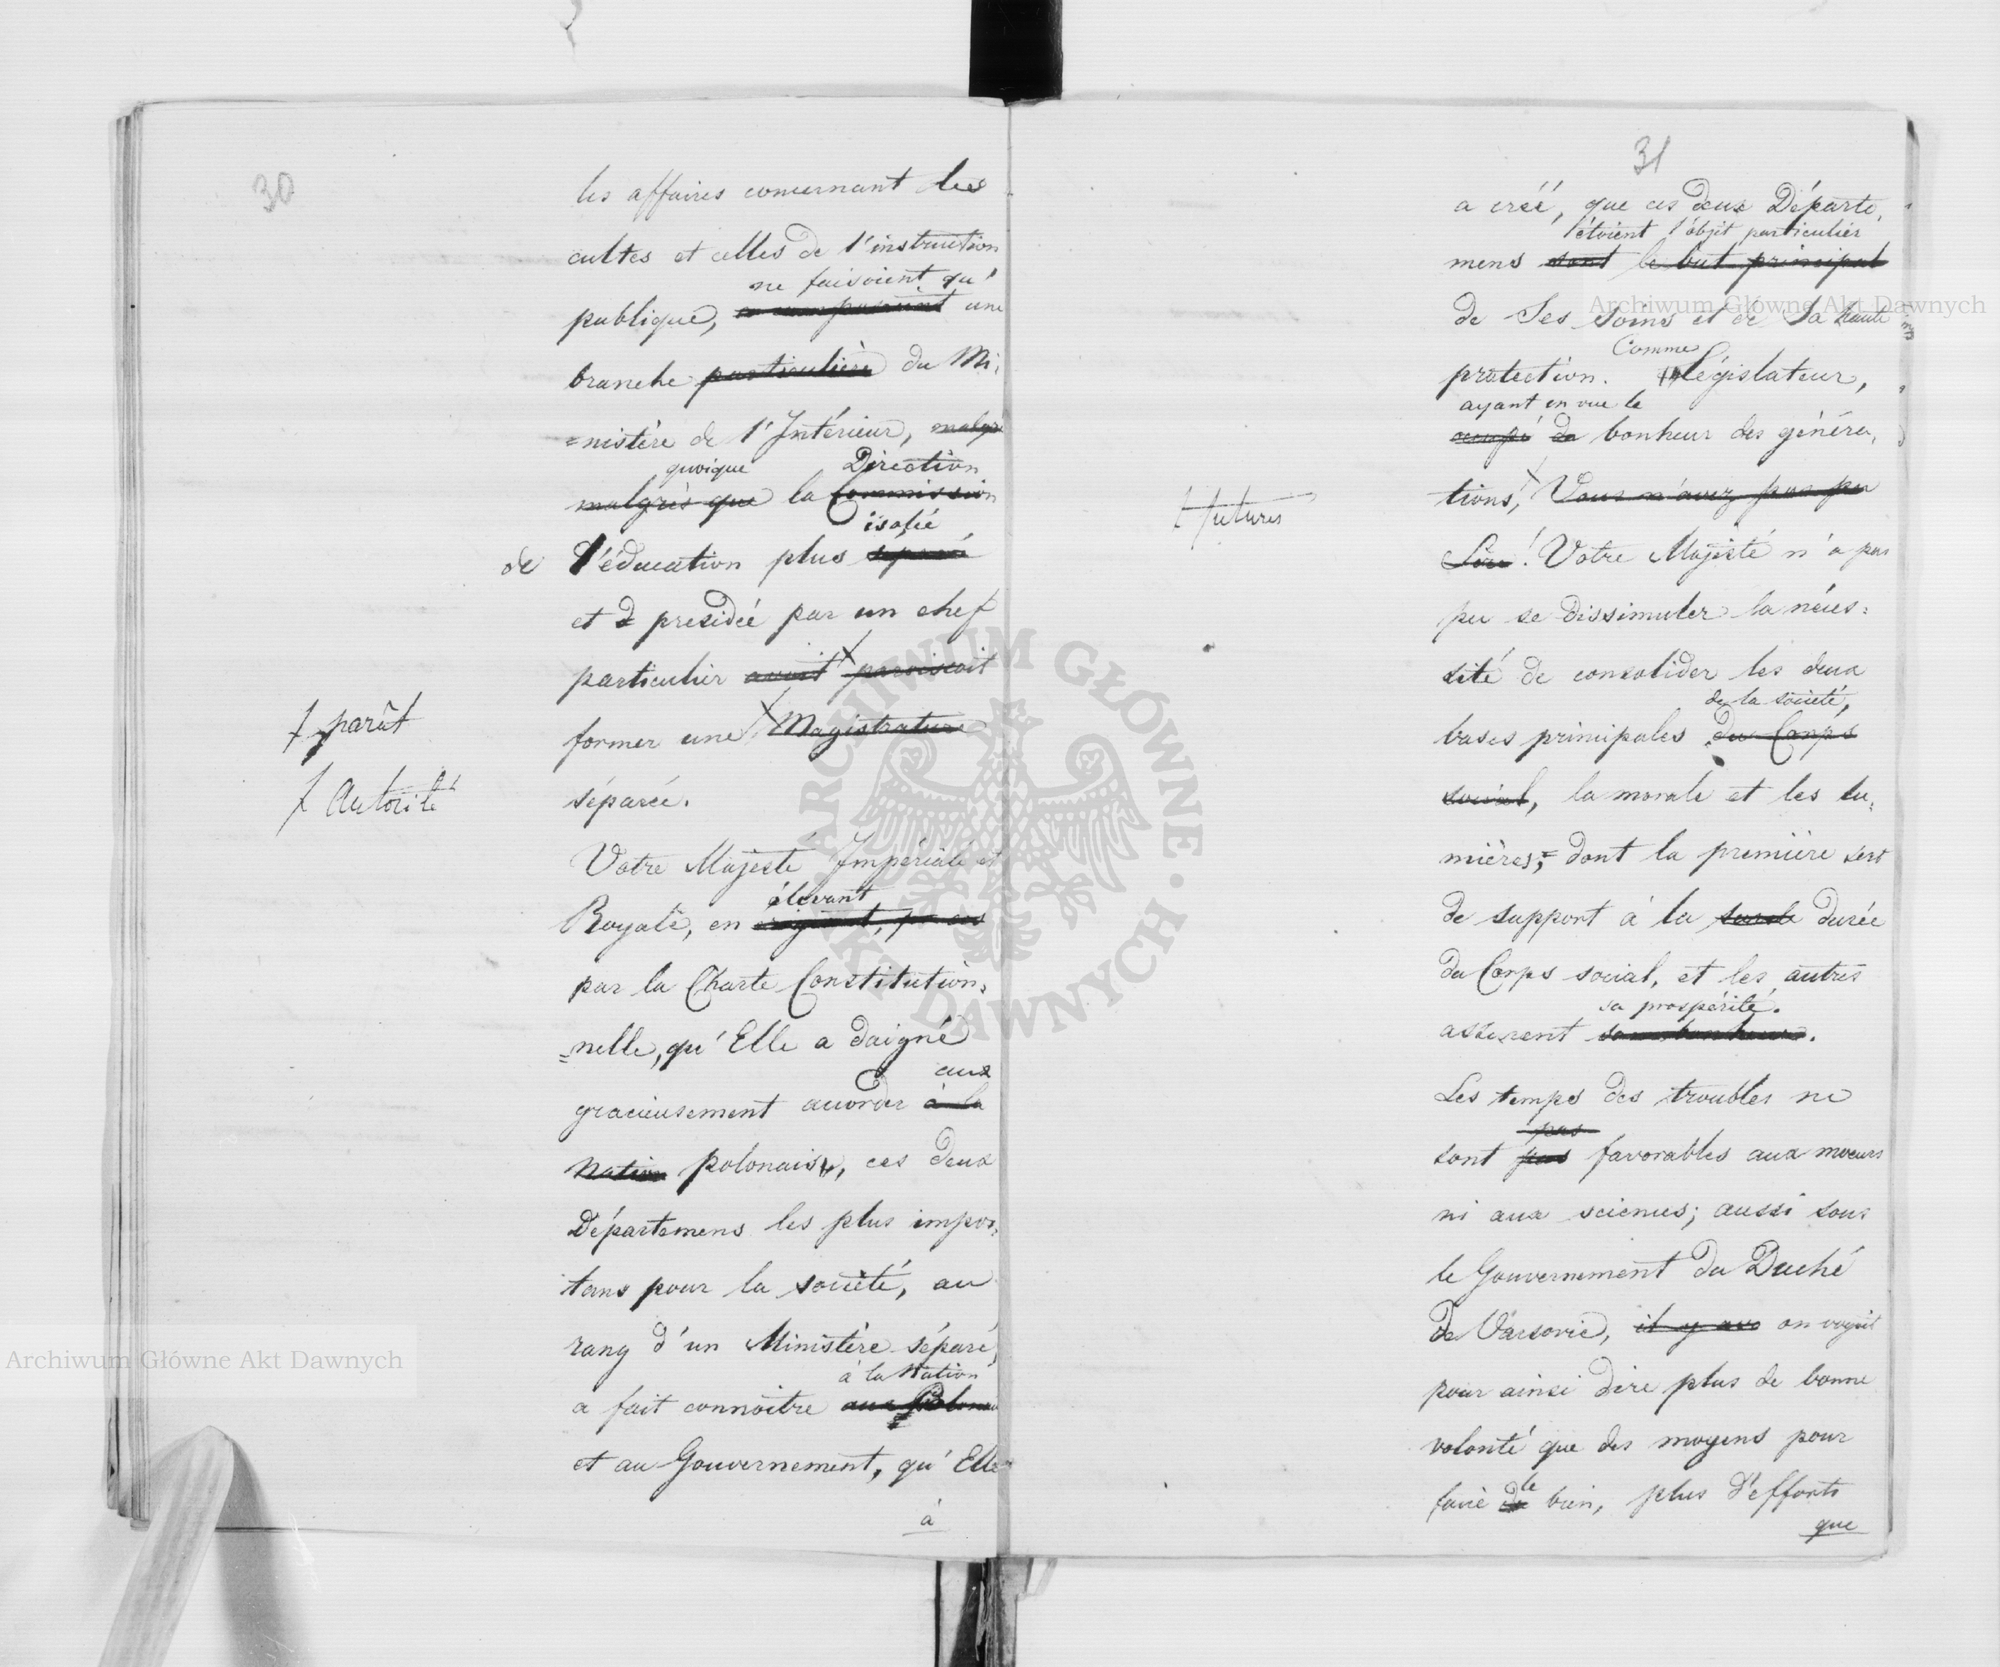 30
les affaires concernant les
cultes et celles de l'instruction
ne faisoient qu'
publique, une
branche particulière du Mi,
=nistère de l'Intérieur, malgré
quoique Direction
malgrès que la Commission
isolée
de l'éducation plus separée
et presidée par un chef
particulier avoit paroissoit
ƒ parût
former une Magistrature
ƒ Autorité
séparée.
Votre Majesté Impériale et
élevant
Royale, en erigeant, par ces
par la Charte Constitution,
=nelle, qu'Elle a daigné
aux
gracieusement accorder à la
Nation polonais, ces deux
Départemens les plus impor,
tans pour la société, au
rang d'un Ministère séparé,
à la Nation
a fait connoître aux Polonais
et au Gouvernement, qu'Elle
à
31
a créé, que ces deux Départe,
étoient l'objèt particulier
mens sont le but principal
de Ses soins et de Sa haute
Comme
protection. Législateur,
ayant en vue le
occupé du bonheur des généra,
tions, Vous n'avez pas pu
futures
Sire! Votre Majesté n'a pas
pu se dissimuler la néces=
sité de consolider les deux
de la société,
bases principales du Corps
social, la morale et les lu,
mières, dont la première sert
de support à la durée
du Corps social, et les autres
sa prospérité.
assurent son bonheur.
Les temps des troubles ne
pas
sont pas favorables aux moeurs
ni aux sciences; aussi sous
le Gouvernement du Duché
de Varsovie, il y avo on voyoit
pour ainsi dire plus de bonne
volonté que des moyens pour
le
faire de bien, plus d'efforts
que
Archiwum Główne Akt Dawnych
Archiwum Główne Akt Dawnych
ARCHIWUM GŁÓWNE AKT DAWNYCH